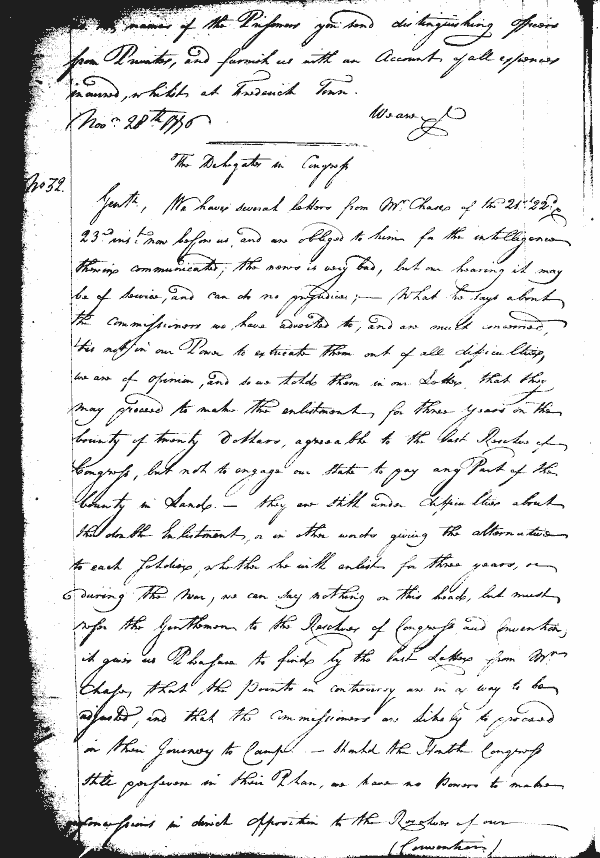 names of the Prisoners you send distinguishing officers
from Privates, and furnish us with an Account of all expences
incurred, whilst at Frederick Town.
We are &
Novr. 28th 1776
The Delegates in Congress
No 32.
Gentn. We have several letters from Mr. Chase of the 21st 22d &
23d inst. now before us, and are obliged to him for the intelligence
therein communicated, the news is very bad, but our hearing it may
be of service, and can do no prejudice; — What he says about
the commissioners we have adverted to, and are much concerned,
'tis not in our Power to extricate them out of all difficulties,
we are of opinion, and so we told them in our Letter, that they
may proceed to make the enlistment for three years on the
bounty of twenty Dollars, agreeable to the last Resolve of
Congress, but not to engage our State to pay any Part of the
bounty in Lands. — they are still under difficulties about
the double Enlistment, or in other words giving the alternative
to each Soldier, whether he will enlist for three years, or
during the War, we can say nothing on this head, but must
refer the Gentlemen to the Resolves of Congress and Convention,
it gives us Pleasure to find by the last Letters from Mr.
Chase, that the Points in controversy are in a way to be
adjusted, and that the Commissioners are likely to proceed
on their Journey to Camp — Should the Congress
still persevere in their Plan, we have no Powers to make
concessions in direct opposition to the Resolves of our
(Convention)